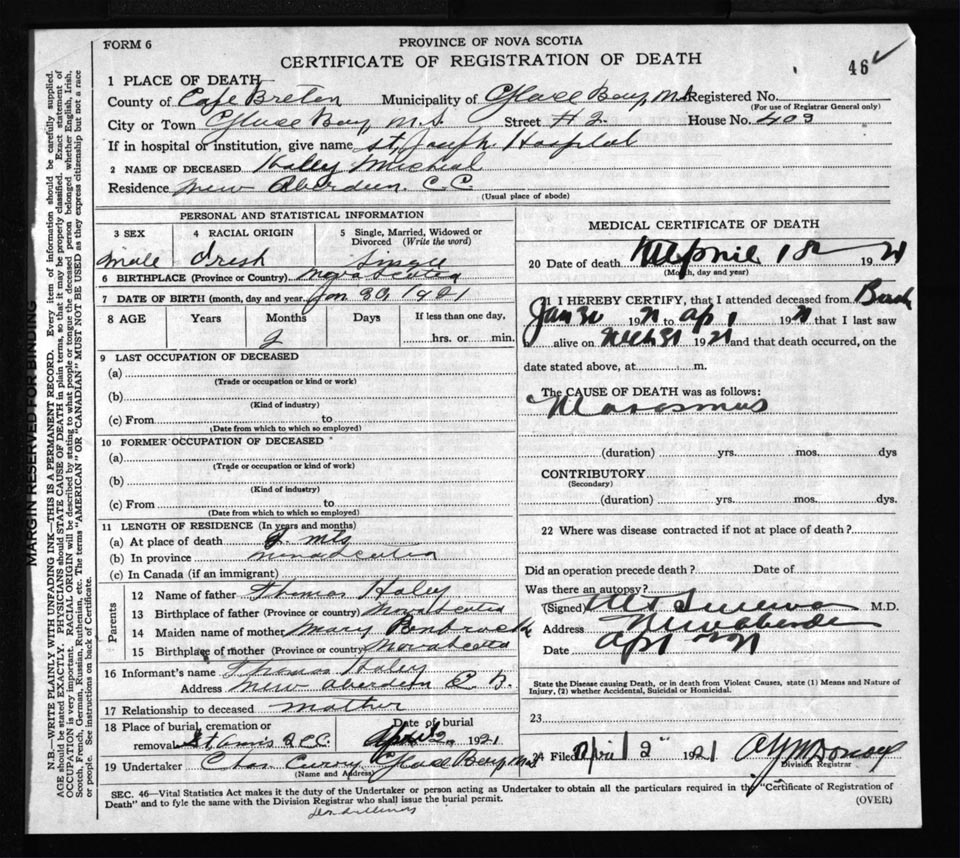 FORM 6
PROVINCE OF NOVA SCOTIA
CERTIFICATE OF REGISTRATION OF DEATH
46
1 PLACE OF DEATH
County of Cape Breton Municipality of Glace Bay N.S Registered No.
(For use of Registrar General only)
City or Town Glace Bay N.S. Street # 2 House No. 403
If in hospital or institution, give name St Joseph Hospital
2 NAME OF DECEASED Haley Micheal
Residence New Aberdeen. C.C
(Usual place of abode)
PERSONAL AND STATISTICAL INFORMATION
3 SEX
male
4 RACIAL ORIGIN
Irish
5 Single, Married, Widowed or Divorced (Write the word)
Single
6 BIRTHPLACE (Province or Country) Nova Scotia
7 DATE OF BIRTH (month, day and year) Jan 30 1921
8 AGE Years Months Days If less than one day,
2 hrs. or min.
9 LAST OCCUPATION OF DECEASED
(a)
(Trade or occupation or kind or work)
(b)
(Kind of industry)
(c) From to
(Date from which to which so employed)
10 FORMER OCCUPATION OF DECEASED
(a)
(Trade or occupation or kind of work)
(b)
(Kind of industry)
(c) From to
(Date from which to which so employed)
11 LENGTH OF RESIDENCE (In years and months)
(a) At place of death 2 mts
(b) In province Nova Scotia
(c) In Canada (if an immigrant)
Parents
12 Name of father Thomas Haley
13 Birthplace of father (Province or country) Nova Scotia
14 Maiden name of mother Mary
15 Birthplace of mother (Province or country) Nova Scotia
16 Informant's name Thomas Haley
Address New Aberdeen C. B.
17 Relationship to deceased mother
18 Place of burial, cremation or Date of burial
removal St Ann's April 2 1921
19 Undertaker Chas Curry Glace Bay N.S
(Name and Address)
MEDICAL CERTIFICATE OF DEATH
20 Date of death April 1st 1921
(Month, day and year)
21 I HEREBY CERTIFY, that I attended deceased from Birth
Jan 30 1921 to Apr 1 1921 that I last saw
alive on Mch 31 1921 and that death occurred, on the
date stated above, at m.
The CAUSE OF DEATH was as follows:
Marasmus
(duration) yrs. mos. dys
CONTRIBUTORY
(Secondary)
(duration) yrs. mos. dys.
22 Where was disease contracted if not at place of death?
Did an operation precede death? Date of
Was there an autopsy?
(Signed) M.D.
Address New Aberdeen
Date Apr
State the Disease causing Death, or in death from Violent Causes, state (1) Means and Nature of
Injury, (2) whether Accidental, Suicidal or Homicidal.
23
24 Filed April 2 1921
Division Registrar
SEC. 46—Vital Statistics Act makes it the duty of the Undertaker or person acting as Undertaker to obtain all the particulars required in the "Certificate of Registration of
Death" and to fyle the same with the Division Registrar who shall issue the burial permit.
(OVER)
MARGIN RESERVED FOR BINDING
N.B.—WRITE PLAINLY WITH UNFADING INK—THIS IS A PERMANENT RECORD. Every item of information should be carefully supplied.
AGE should be stated EXACTLY. PHYSICIANS should STATE CAUSE OF DEATH in plain terms, so that it may be properly classified. Exact statement of
OCCUPATION is very important. RACIAL ORIGIN will be described by stating to what people or tongue the deceased person belonged whether English, Irish,
Scotch, French, German, Russian, Ruthenian, etc. The terms "AMERICAN" OR "CANADIAN" MUST NOT BE USED as they express citizenship but not a race
or people. See instructions on back of Certificate.